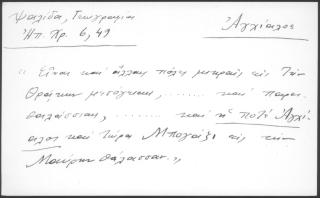 Ψαλίδα, Γεωγραφία
Ἠπ. Χρ. 6, 49
Ἀγχίαλος
"Εἶναι καὶ ἄλλαι πόλεις μικραὶ εἰς τὴν
Θράκην μεσόγειαι, ........ καὶ παρα-
θαλάσσιαι, ........ καὶ ἡ ποτὲ Ἀγχί-
αλος καὶ τώρα Μπογάζι εἰς τὴν
Μαύρην θάλασσαν."